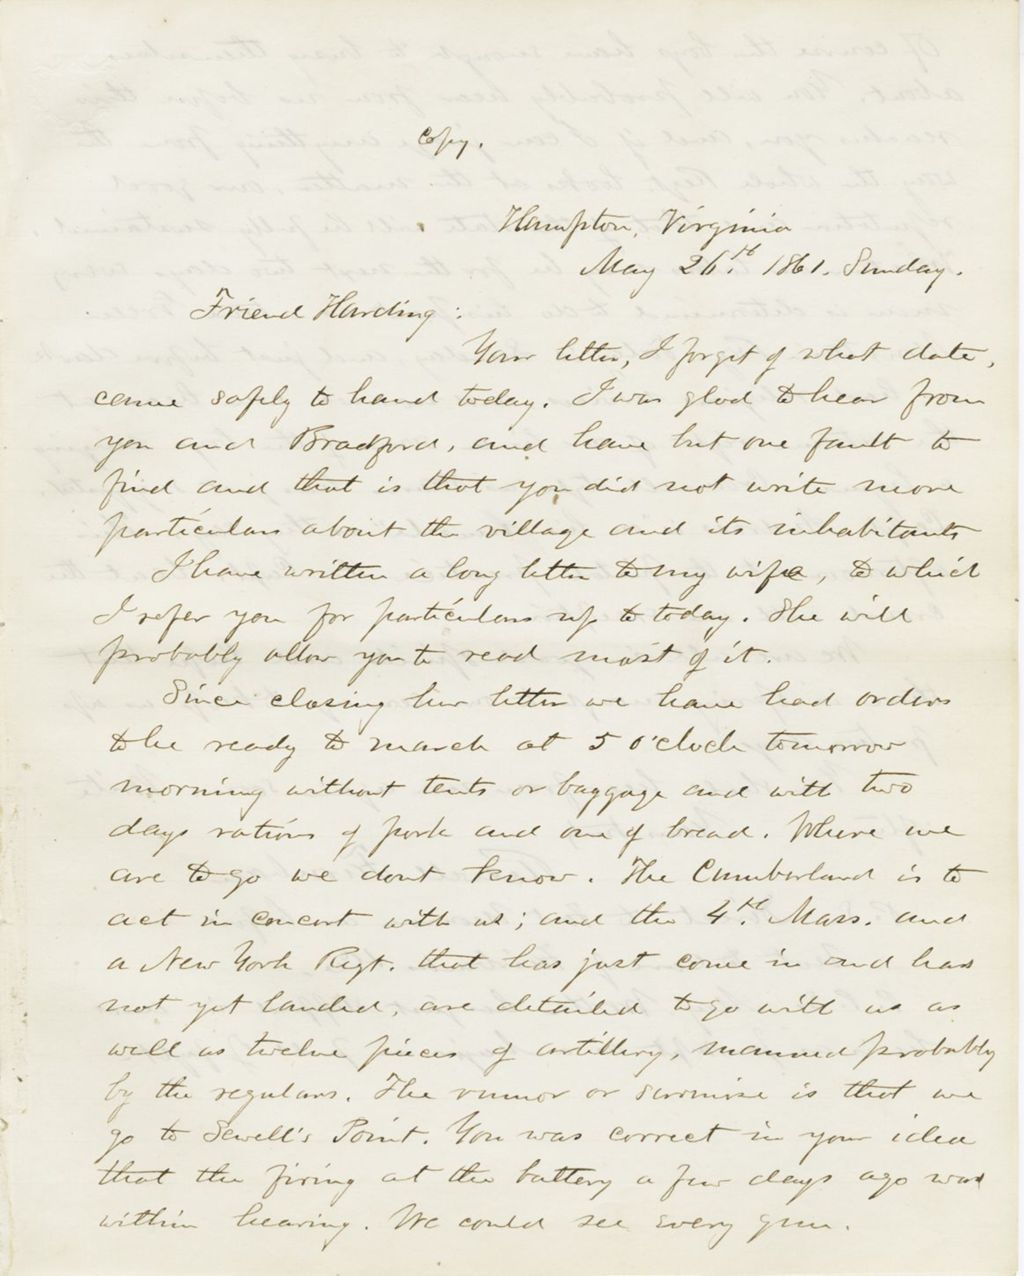 Copy.
Hampton, Virginia
May 26th. 1861. Sunday.
Friend Harding:
Your letter, I forget of what date,
came safely to hand today. I was glad to hear from
you and Bradford, and have but one fault to
find and that is that you did not write more
particulars about the village and its inhabitants
I have written a long letter to my wife, to which
I refer you for particulars up to today. She will
probably allow you to read most of it.
Since closing her letter we have had orders
to be ready to march at 5 o'clock tomorrow
morning without tents or baggage and with two
days rations of pork and one of bread. Where we
are to go we dont know. The Cumberland is to
act in concert with us; and the 4th. Mass. and
a New York Regt. that has just come in and has
not yet landed, are detailed to go with us as
well as twelve pieces of artillery, manned probably
by the regulars. The rumor or surmise is that we
go to Sewell's Point. You was correct in your idea
that the firing at the battery a few days ago was
within hearing. We could see every gun.